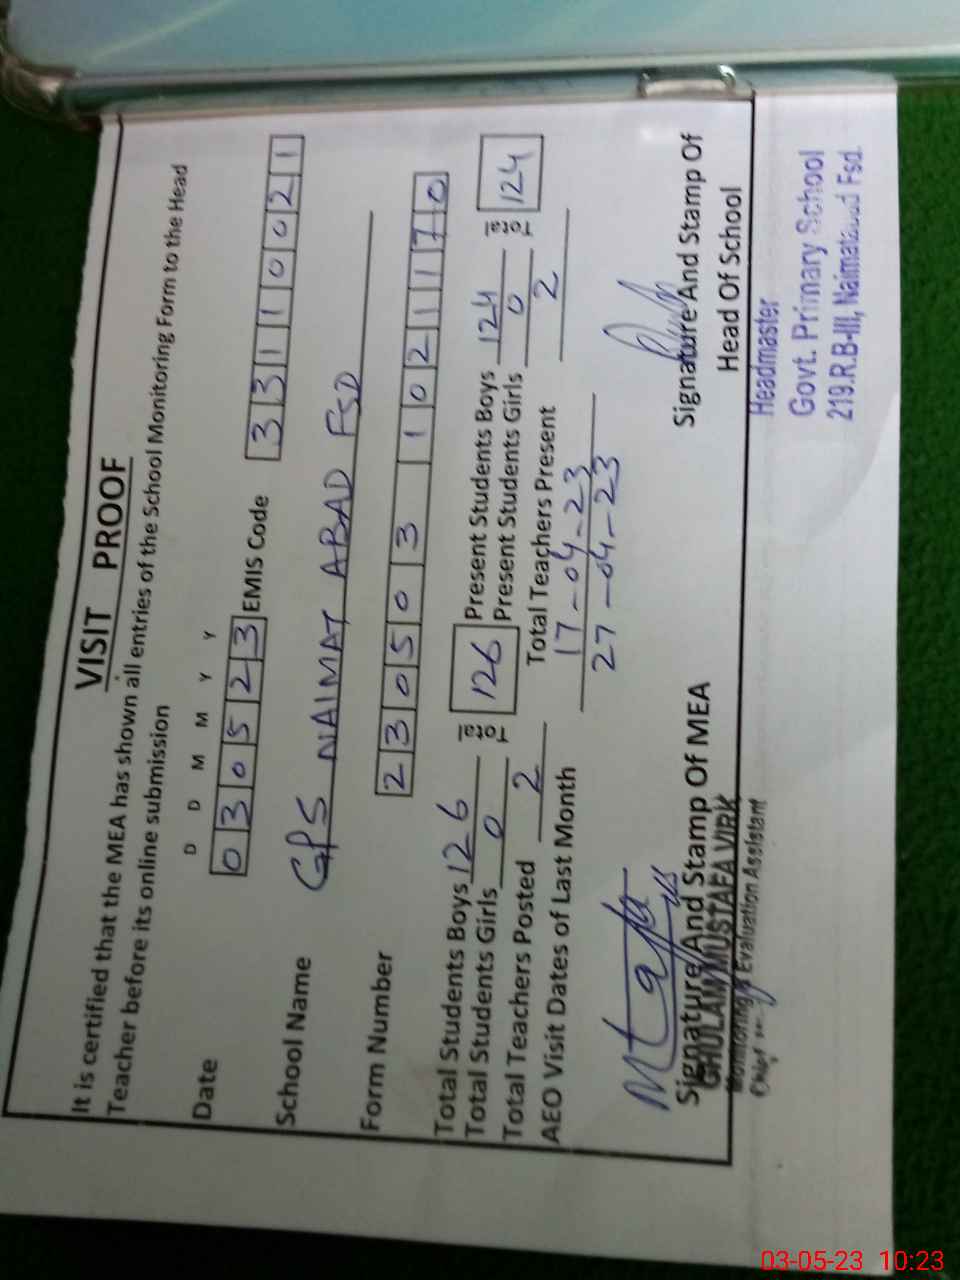 VISIT PROOF
It is certified that the MEA has shown all entries of the School Monitoring Form to the Head
Teacher before its online submission
D D M M Y Y
Date 030523 EMIS Code 33110021
School Name GPS NAIMAT ABAD FSD
Form Number 230503 1021170
Total Students Boys 126 Total 126 Present Students Boys 124 Total 124
Total Students Girls 0 Present Students Girls 0
Total Teachers Posted 2 Total Teachers Present 2
AEO Visit Dates of Last Month 17-04-23
27-04-23
Signature And Stamp Of MEA
GHULAM MUSTAFA VIRK
Monitoring & Evaluation Assistant
Signature And Stamp Of
Head Of School
Headmaster
Govt. Primary School
219.R.B-III, Naimatabad Fsd.
03-05-23 10:23